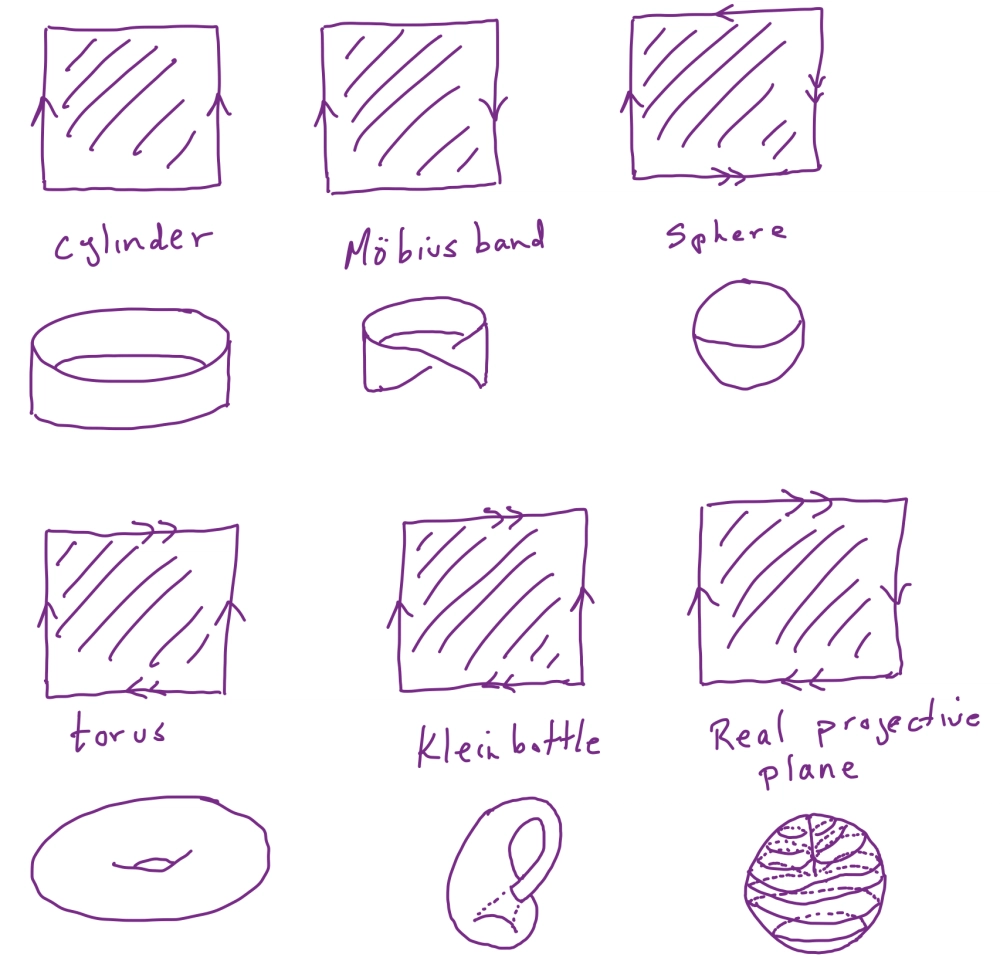 Cylinder
Möbius band
Sphere
torus
Klein bottle
Real projective
plane